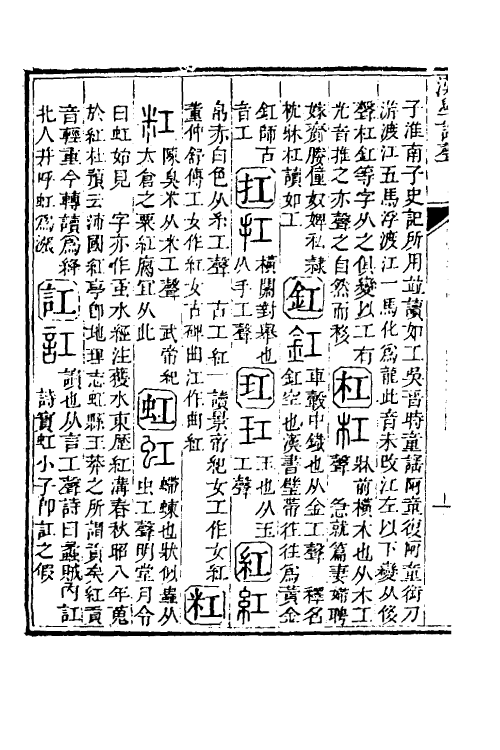 漢學諧聲
子淮南子史記所用並讀如工吳晉時童謠阿童復阿童銜刀
游渡江五馬浮渡江一馬化爲龍此音未改江左以下變从夅
聲杠釭等字从之俱變以工有
光音推之亦聲之自然而移
杠 牀前橫木也从木工
聲 急就篇妻婦聘
嫁齎媵僮奴婢私隸
枕牀杠讀如工
釭 車轂中鐵也从金工聲 釋名
釭空也漢書壁帶往往爲黃金
釭師古
音工
扛 橫關對舉也
从手工聲
玒 玉也从玉
工聲
紅
帛赤白色从糸工聲 古工紅一讀景帝紀女工作女紅
董仲舒傳工女作紅女古碑曲江作曲紅
粠
陳臭米从米工聲 武帝紀
太倉之粟紅腐宜从此
虹 螮蝀也狀似蟲从
虫工聲明堂月令
曰虹始見 字亦作䖟水經注獲水東歷紅溝春秋昭八年蒐
於紅杜預云沛國紅亭卽地理志虹縣王莽之所謂貢矣紅貢
音輕重今轉讀爲絳
北人幷呼虹爲絳
訌 讀也从言工聲詩曰蟊賊內訌
詩實虹小子卽訌之假